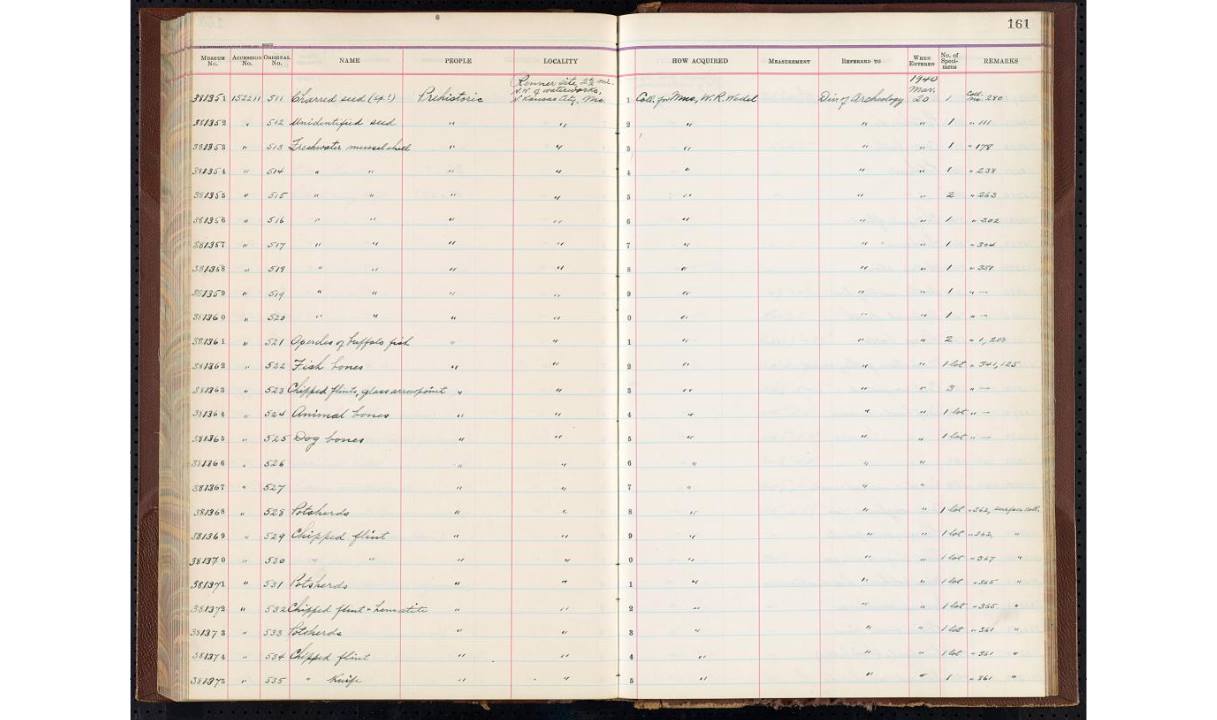 161
MUSEUM No. ACCESSION No. ORIGINAL No. NAME PEOPLE LOCALITY HOW ACQUIRED MEASUREMENT REFERRED TO WHEN ENTERED No. of Specimens REMARKS
Renner site, 2½ mi. 1940
N.W. of waterworks, Mar.
381351 152211 511 Charred seed Prehistoric N. Kansas City, Mo. 1 Coll. for Mus., W. R. Wedel Div. of Archeology 20 1 Coll. No. 280
381352 " 512 Unidentified seed " " 2 " " " 1 " 111
381353 " 513 Freshwater mussel shell " " 3 " " " 1 " 178
381354 " 514 " " " " 4 " " " 1 " 238
381355 " 515 " " " " 5 " " " 2 " 263
381356 " 516 " " " " 6 " " " 1 " 302
381357 " 517 " " " " 7 " " " 1 " 304
381358 " 518 " " " " 8 " " " 1 " 351
381359 " 519 " " " " 9 " " " 1 " —
381360 " 520 " " " " 0 " " " 1 " —
381361 " 521 Opercles of buffalo fish " " 1 " " " 2 " 1, 203
381362 " 522 Fish bones " " 2 " " " 1 lot " 341, 125
381363 " 523 Chipped flints, glass arrowpoint " " 3 " " " 3 " —
381364 " 524 Animal bones " " 4 " " " 1 lot " —
381365 " 525 Dog bones " " 5 " " " 1 lot " —
381366 " 526 " " 6 " " "
381367 " 527 " " 7 " " "
381368 " 528 Potsherds " " 8 " " " 1 lot " 362, surface coll.
381369 " 529 Chipped flint " " 9 " " " 1 lot " 362 "
381370 " 530 " " " " 0 " " " 1 lot " 367 "
381371 " 531 Potsherds " " 1 " " " 1 lot " 365 "
381372 " 532 Chipped flint + hematite " " 2 " " " 1 lot " 365 "
381373 " 533 Potsherds " " 3 " " " 1 lot " 361 "
381374 " 534 Chipped flint " " 4 " " " 1 lot " 361 "
381375 " 535 " knife " " 5 " " " 1 " 361 "